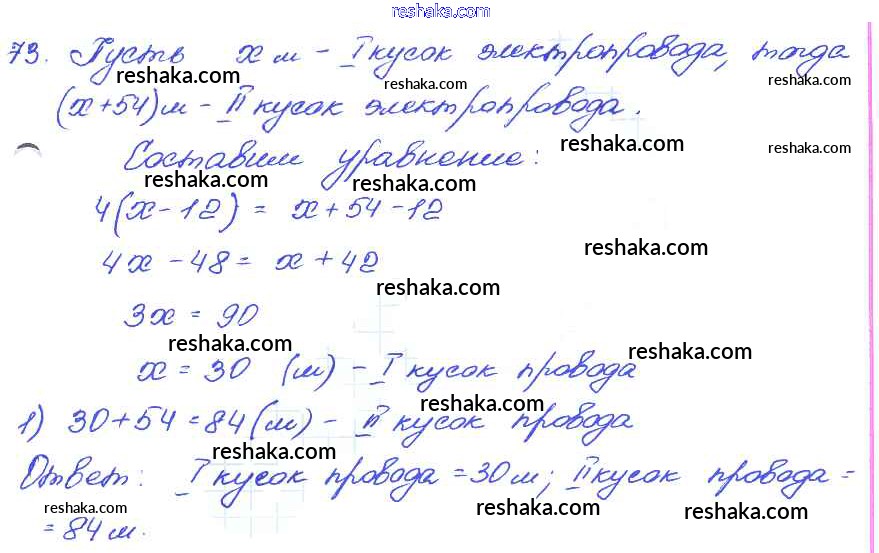 reshaka.com
73. Пусть x м – I кусок электропровода, тогда
reshaka.com reshaka.com reshaka.com
(x+54) м – II кусок электропровода.
reshaka.com reshaka.com
Составим уравнение:
reshaka.com reshaka.com
4(x-12) = x+54-12
reshaka.com
4x - 48 = x + 42
reshaka.com
3x = 90
reshaka.com reshaka.com
x = 30 (м) – I кусок провода
reshaka.com
1) 30+54=84(м) – II кусок провода
reshaka.com
Ответ: I кусок провода = 30 м; II кусок провода =
reshaka.com reshaka.com reshaka.com
= 84 м.